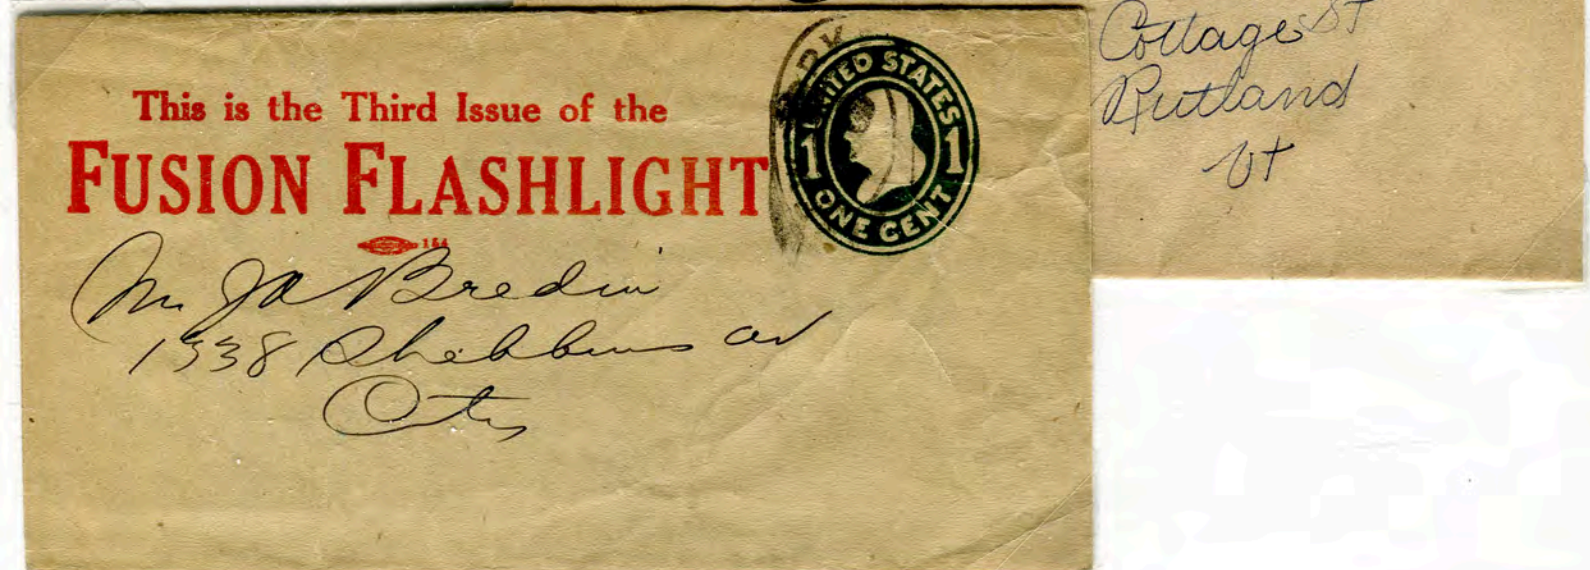 This is the Third Issue of the
FUSION FLASHLIGHT
154
UNITED STATES
1 1
ONE CENT
Mr JA Bredin
1338 Stebbins av
City
Cottage St
Rutland
Vt